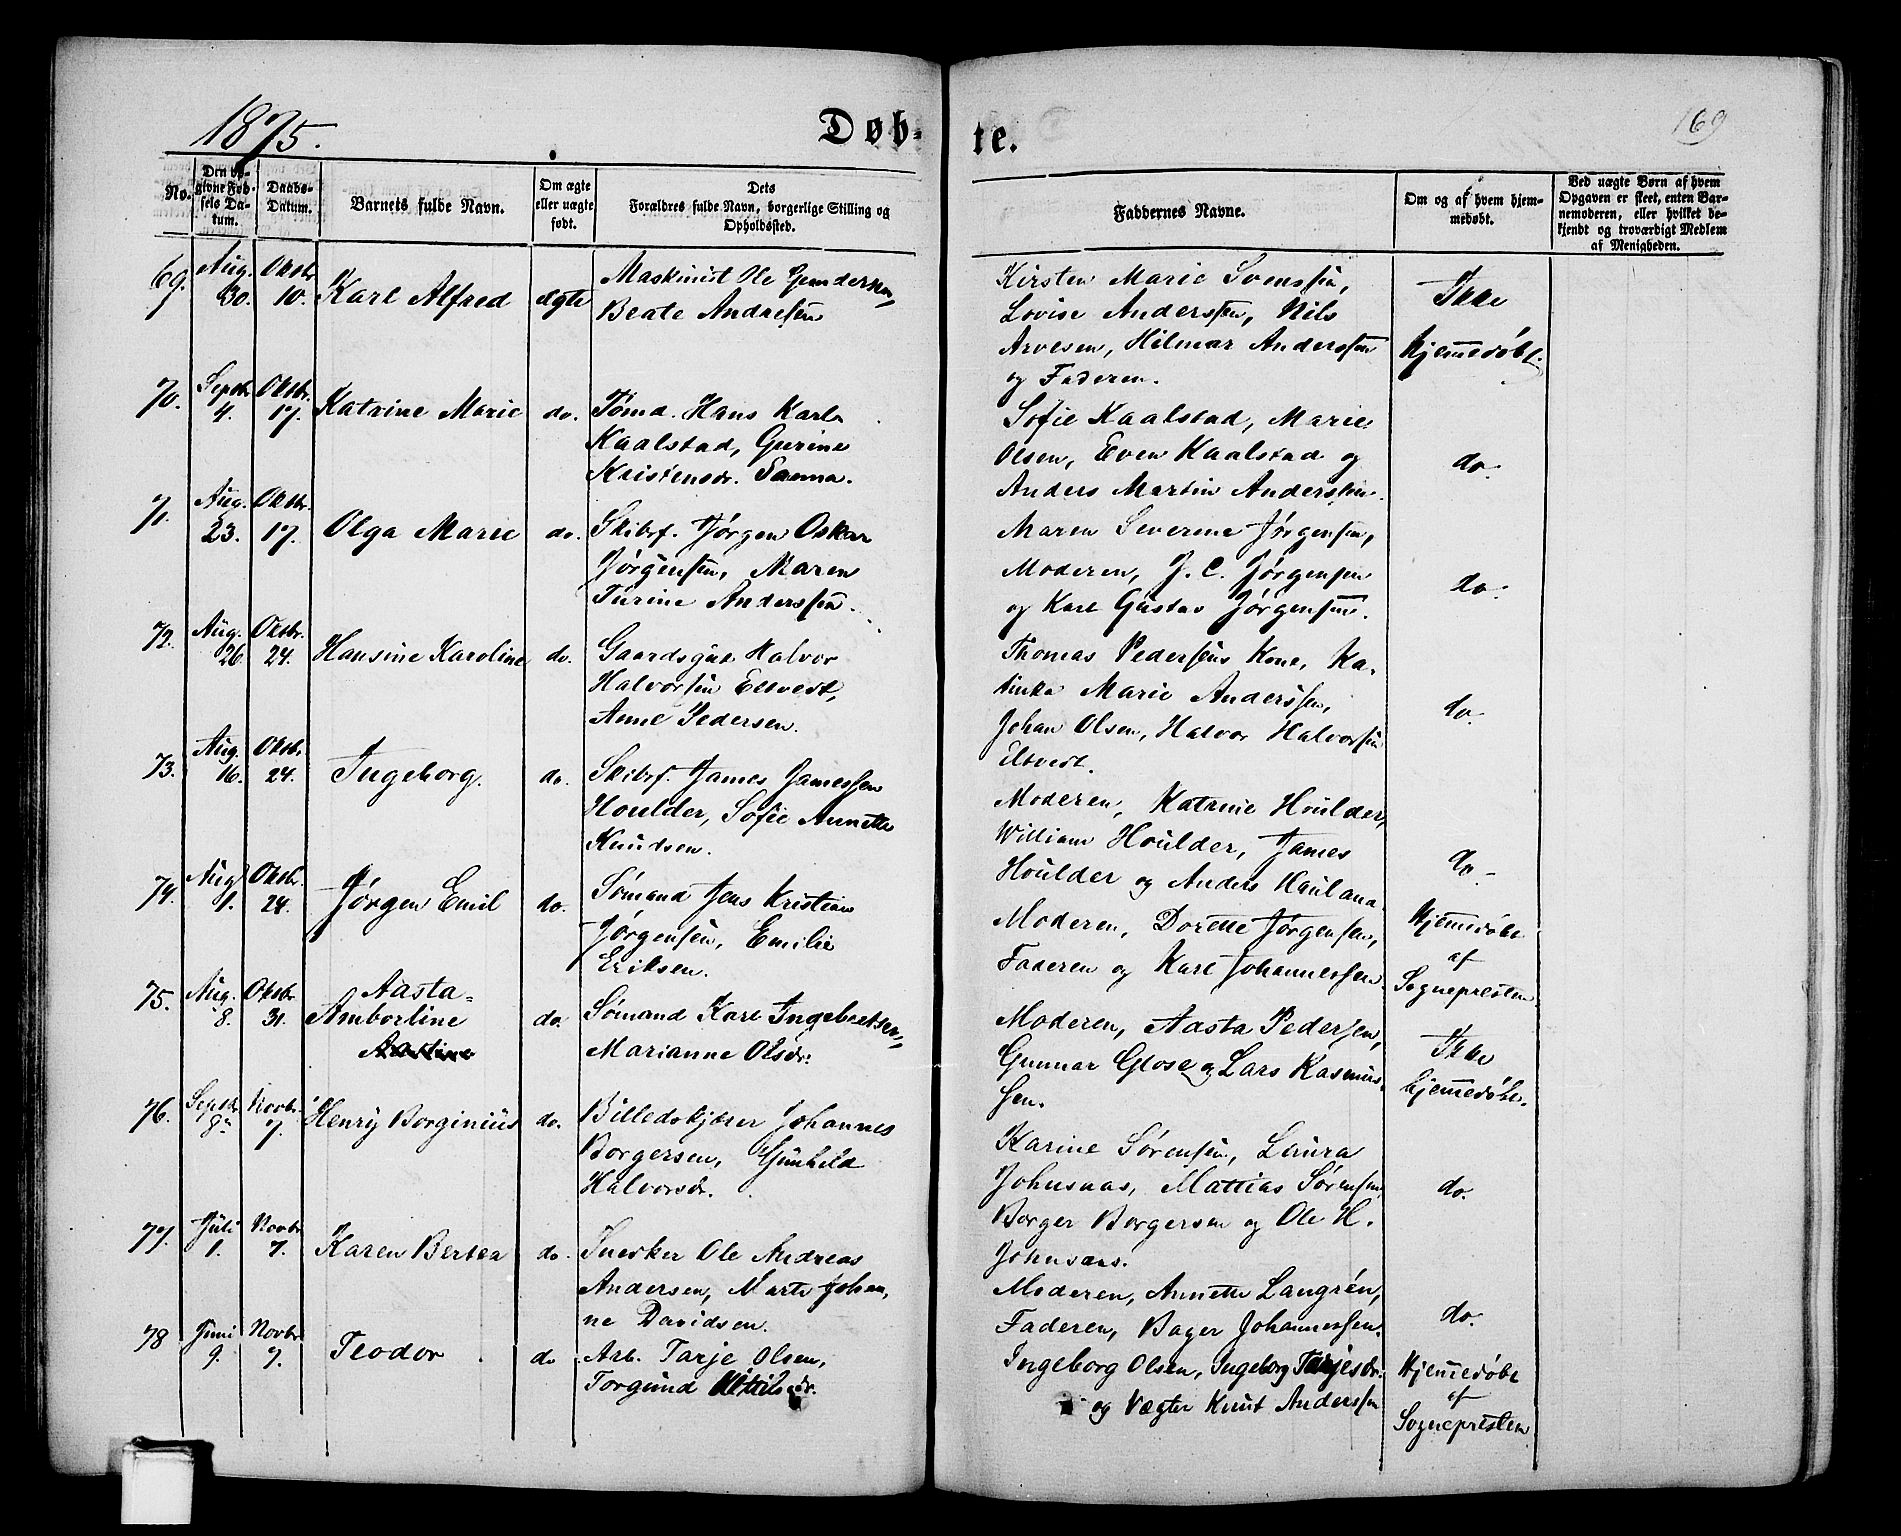 1875.
Døb-
te.
169
No.
Den op-
givne Fød-
sels Da-
tum.
Daabs-
Datum.
Barnets fulde Navn.
Om ægte
eller uægte
født.
Dets
Forældres fulde Navn, borgerlige Stilling og
Opholdssted.
Faddernes Navne.
Om og af hvem hjem-
medøbt.
Ved uægte Børn af hvem
Opgaven er skeet, enten Bar-
nemoderen, eller hvilket be-
kjendt og troværdigt Medlem
af Menigheden.
69.
Aug.
30.
Oktbr.
10.
Karl Alfred
ægte
Maskinist Ole
Beate Andresen
Kirsten Marie Svenssen,
Lovise Anderssen, Nils
Arvesen, Hilmar Anderssen
og Faderen.
Ikke
hjemmedøbt.
70.
Septbr.
4.
Oktbr.
17.
Katrine Marie
do.
Sømd. Hans Karl
Kaalstad, Gurine
Kristensdr. Sanna.
Sofie Kaalstad, Marie
Olsen, Even Kaalstad og
Anders Martin Anderssen.
do.
71.
Aug.
23.
Oktbr.
17.
Olga Marie
do.
Skibsf. Jørgen Oskar
Jørgensen, Maren
Turine Anderssen.
Maren Severine Jørgensen,
Moderen, J. C. Jørgensen
og Karl Gustav Jørgensen.
do.
72.
Aug.
26.
Oktbr.
24.
Hansine Karoline
do.
Gaardsgut Halvor
Halvorsen Eltvedt,
Anne Pedersen.
Thomas Pedersens Kone, Ka-
tinka Marie Anderssen,
Johan Olsen, Halvor Halvorsen
Eltvedt.
do.
73.
Aug.
16.
Oktbr.
24.
Ingeborg.
do.
Skibsf. James Jamessen
Houlder, Sofie Annette
Knudsen.
Moderen, Katrine Houlder,
William Houlder, James
Houlder og Anders
do.
74.
Aug.
1.
Oktbr.
24.
Jørgen Emil
do.
Sømand Jens Kristian
Jørgensen, Emilie
Eriksen.
Moderen, Dorette Jørgensen,
Faderen og Karl Johannessen.
Hjemmedøbt
af
Sognepresten
75.
Aug.
8.
Oktbr.
31.
Aasta
Amborline
do.
Sømand Karl Ingebretsen,
Marianne Olsdr.
Moderen, Aasta Pedersen,
Gunnar Glose og Lars Rasmus-
sen.
Ikke
hjemmedøbt.
76.
Septbr.
8de
Novbr.
7.
Henry Borginius
do.
Billedskjærer Johannes
Borgersen, Gunhild
Halvorsdr.
Karine Sørensen, Laura
Johnsnas, Mattias Sørensen,
Borger Borgersen og Ole H.
Johnsaas.
do.
77.
Juli
1.
Novbr.
7.
Karen Bertea
do.
Snedker Ole Andreas
Andersen, Marte Johan-
ne Davidsen.
Moderen, Annette Langrén,
Faderen, Bager Johannessen.
do.
78
Juni
9.
Novbr.
7.
Teodor
do
Arb. Tarje Olsen,
Torgund Kittilsdr.
Ingeborg Olsen, Ingeborg Tarjesdr.
og Vægter Knut Anderssen
Hjemmedøbt
af
Sognepresten